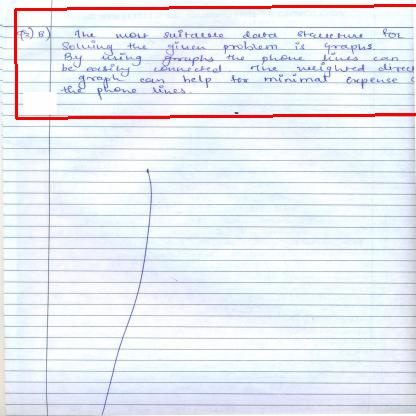 Q2) B) The most suitable data structure for
Solving the given problem is graphs.
By using graphs the phone lines can
be easily connected. The weighted direc
graph can help for minimal expense
the phone lines.